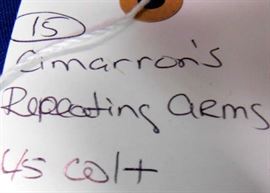 15
Cimarron's
Repeating Arms
45 colt